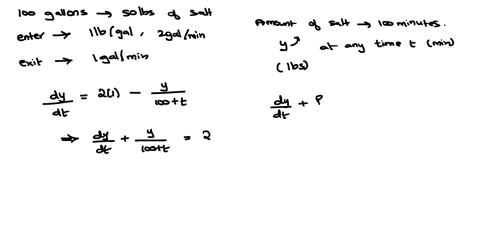 100 gallons → 50lbs of salt
enter → 1lb/gal, 2gal/min
exit → 1gal/min
dy/dt = 2(1) - y/100+t
⇒ dy/dt + y/100+t = 2
Amount of salt → 100 minutes.
y → at any time t (min)
(lbs)
dy/dt + P